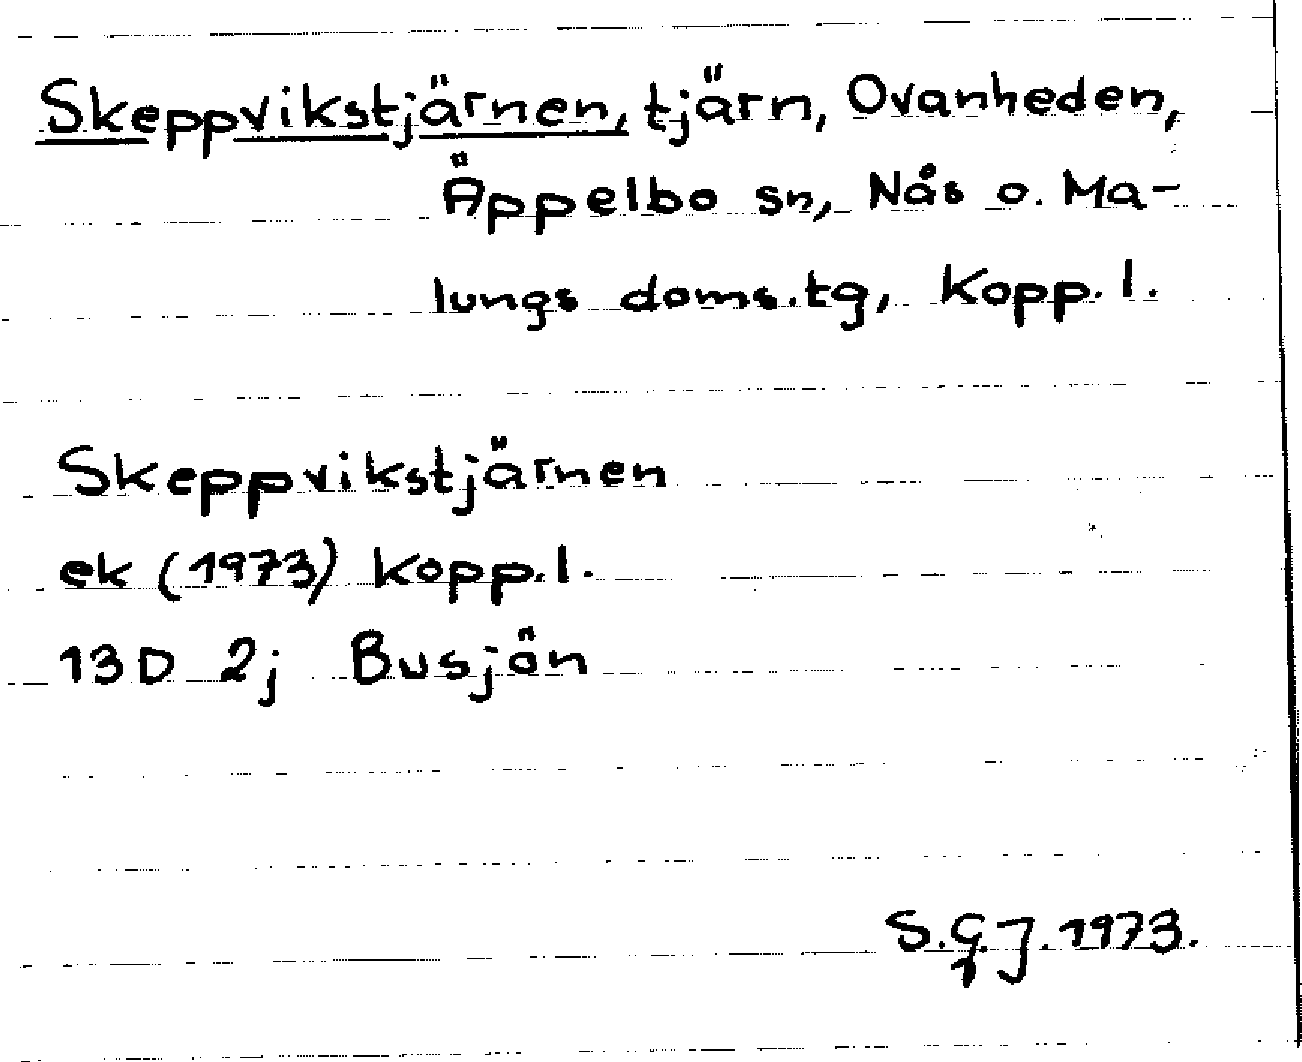 Skeppvikstjärnen, tjärn, Ovanheden,
Äppelbo sn, Nås o. Ma-
lungs doms.tg, Kopp. l.
Skeppvikstjärnen
ek (1973) Kopp.l.
13D 2j Busjön
S.G.J. 1973.